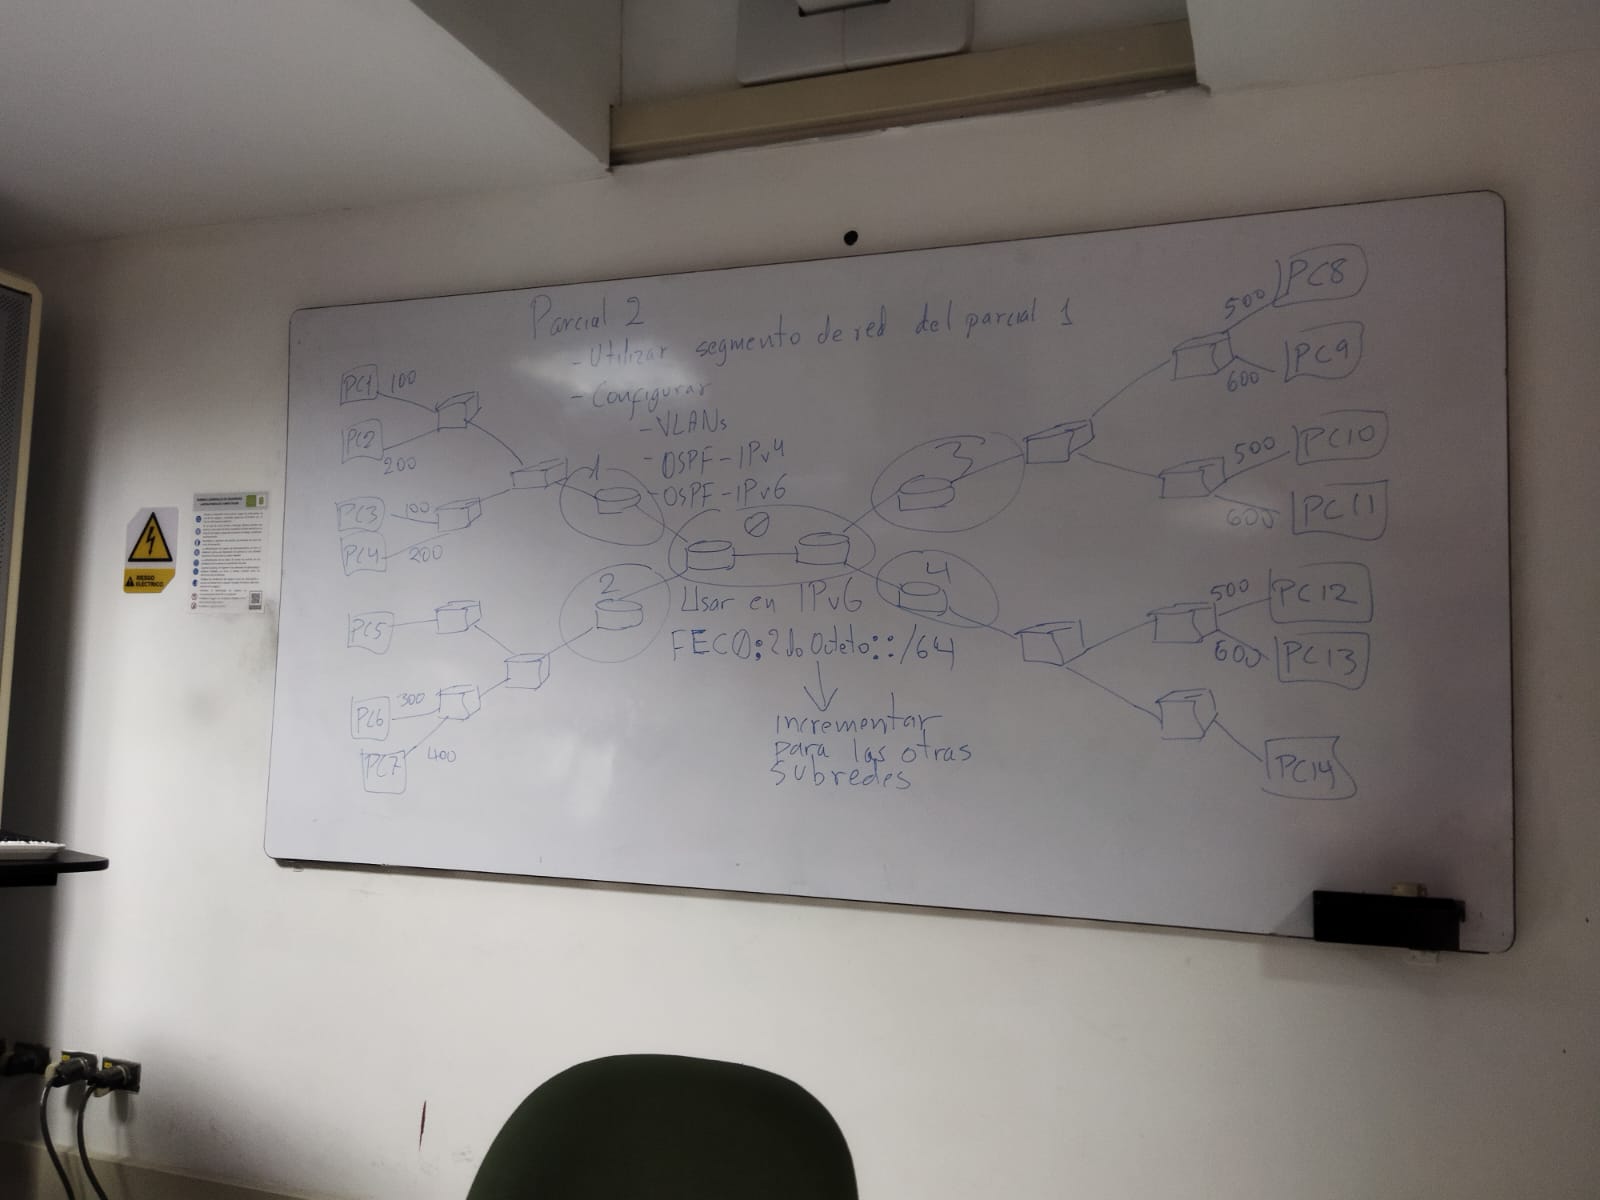 Parcial 2
- Utilizar segmento de red del parcial 1
- Configurar
- VLANs
- OSPF - IPv4
- OSPF - IPv6
PC1 100
PC2
200
PC3 100
PC4 200
PC5
PC6 300
PC7 400
1
2
0
3
4
Usar en IPv6
FEC0:2do Octeto::/64
incrementar
para las otras
subredes
500 PC8
600 PC9
500 PC10
600 PC11
500 PC12
600 PC13
PC14
RIESGO
ELÉCTRICO